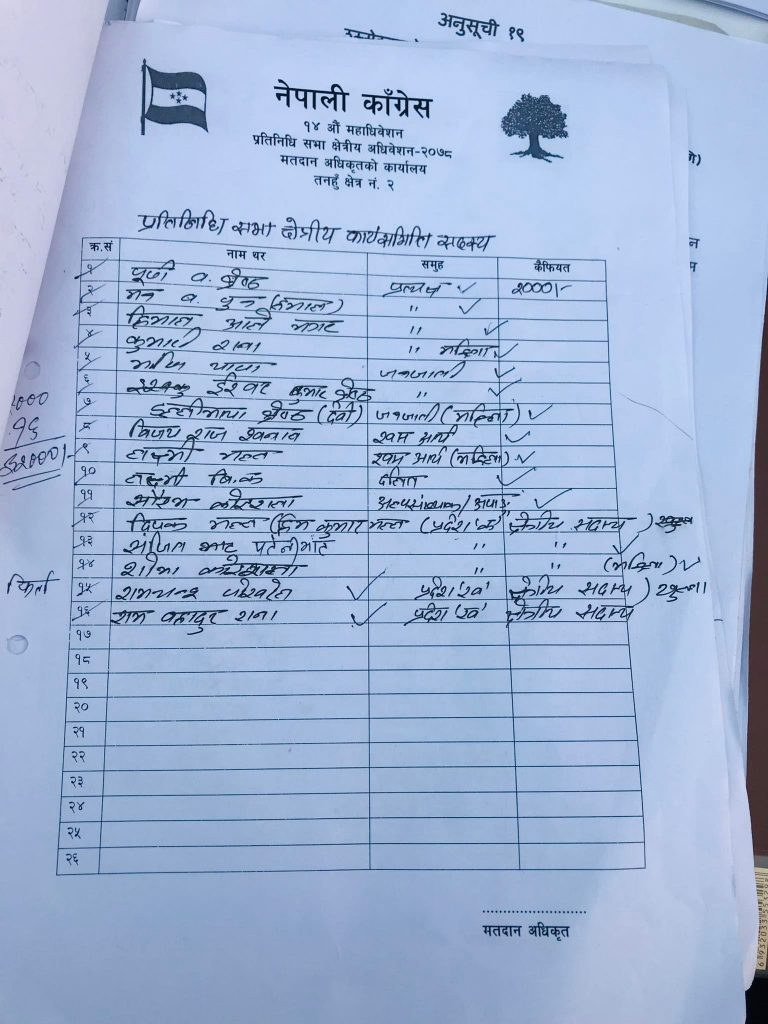 अनुसूची १९
नेपाली काँग्रेस
१४ औं महाधिवेशन
प्रतिनिधि सभा क्षेत्रीय अधिवेशन-२०७८
मतदान अधिकृतको कार्यालय
तनहुँ क्षेत्र नं. २
प्रतिनिधि सभा क्षेत्रीय कार्यसमिति सदस्य
क्र.सं नाम थर समुह कैफियत
१ पूर्ण ब. श्रेष्ठ प्रत्यक्ष ✓ २०००।-
२ मन ब. पुन (हिमाल) " ✓
३ हिमाल आले मगर " ✓
४ कुमारी राना " महिला ✓
५ मणि थापा जनजाती ✓
६ ईश्वर कुमार श्रेष्ठ " ✓
७ श्रेष्ठ (देवी) जनजाती (महिला) ✓
८ विजय राज खनाल खस आर्य ✓
९ लक्ष्मी मल्ल खस आर्य (महिला) ✓
१० लक्ष्मी वि.क दलित ✓
११ कोइराला अल्पसंख्यक/अपाङ्ग ✓
१२ दिपक मल्ल (हिम कुमार मल्ल (प्रदेश 'क' क्षेत्रीय सदस्य)
१३ संजित भाट " " ✓
१४ " " (महिला) ✓
१५ रामचन्द्र पोखरेल ✓ प्रदेश 'ख' क्षेत्रीय सदस्य) खुल्ला
१६ राम बहादुर राना ✓ प्रदेश 'ख' क्षेत्रीय सदस्य
१७
१८
१९
२०
२१
२२
२३
२४
२५
२६
२०००
१६
३२०००।-
मतदान अधिकृत